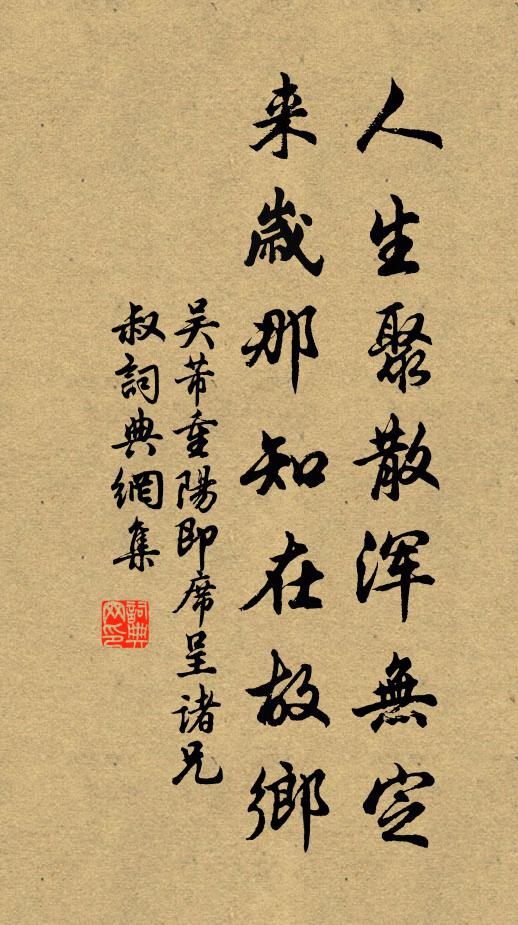 人生聚散浑無定
来歲那知在故鄉
吴芾重陽即席呈諸兄
叔詞典網集
詞典
网印